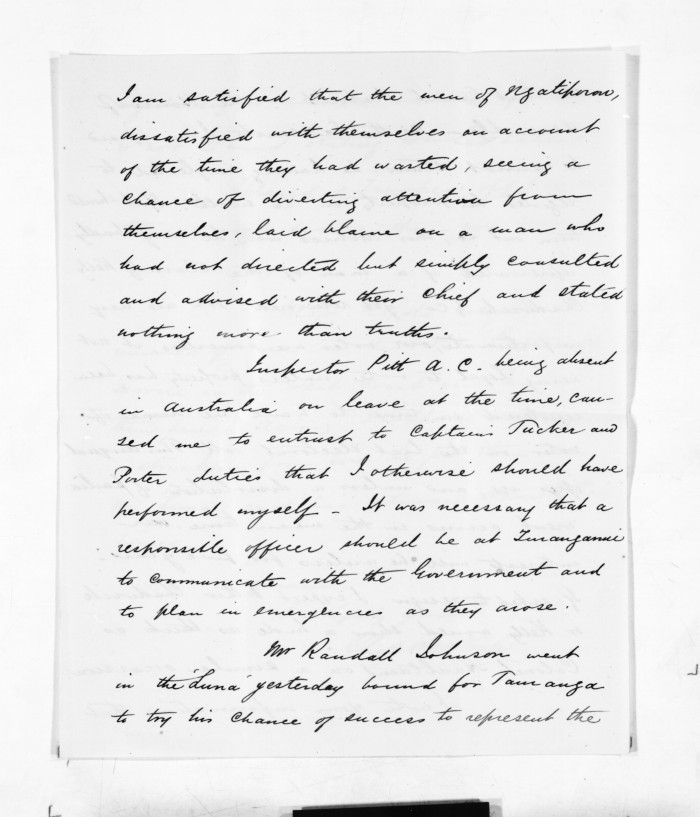 I am satisfied that the men of Ngatiporou,
dissatisfied with themselves on account
of the time they had wasted, seeing a
chance of diverting attention from
themselves, laid blame on a man who
had not directed but simply consulted
and advised with their chief and stated
nothing more than truths.
Inspector Pitt A.C. being absent
in Australia on leave at the time, cau-
sed me to entrust to Captains Tucker and
Porter duties that I otherwise should have
performed myself - It was necessary that a
responsible officer should be at Turanganui
to communicate with the Government and
to plan in emergencies as they arose.
Mr Randall Johnson went
in the 'Luna' yesterday bound for Tauranga
to try his chance of success to represent the